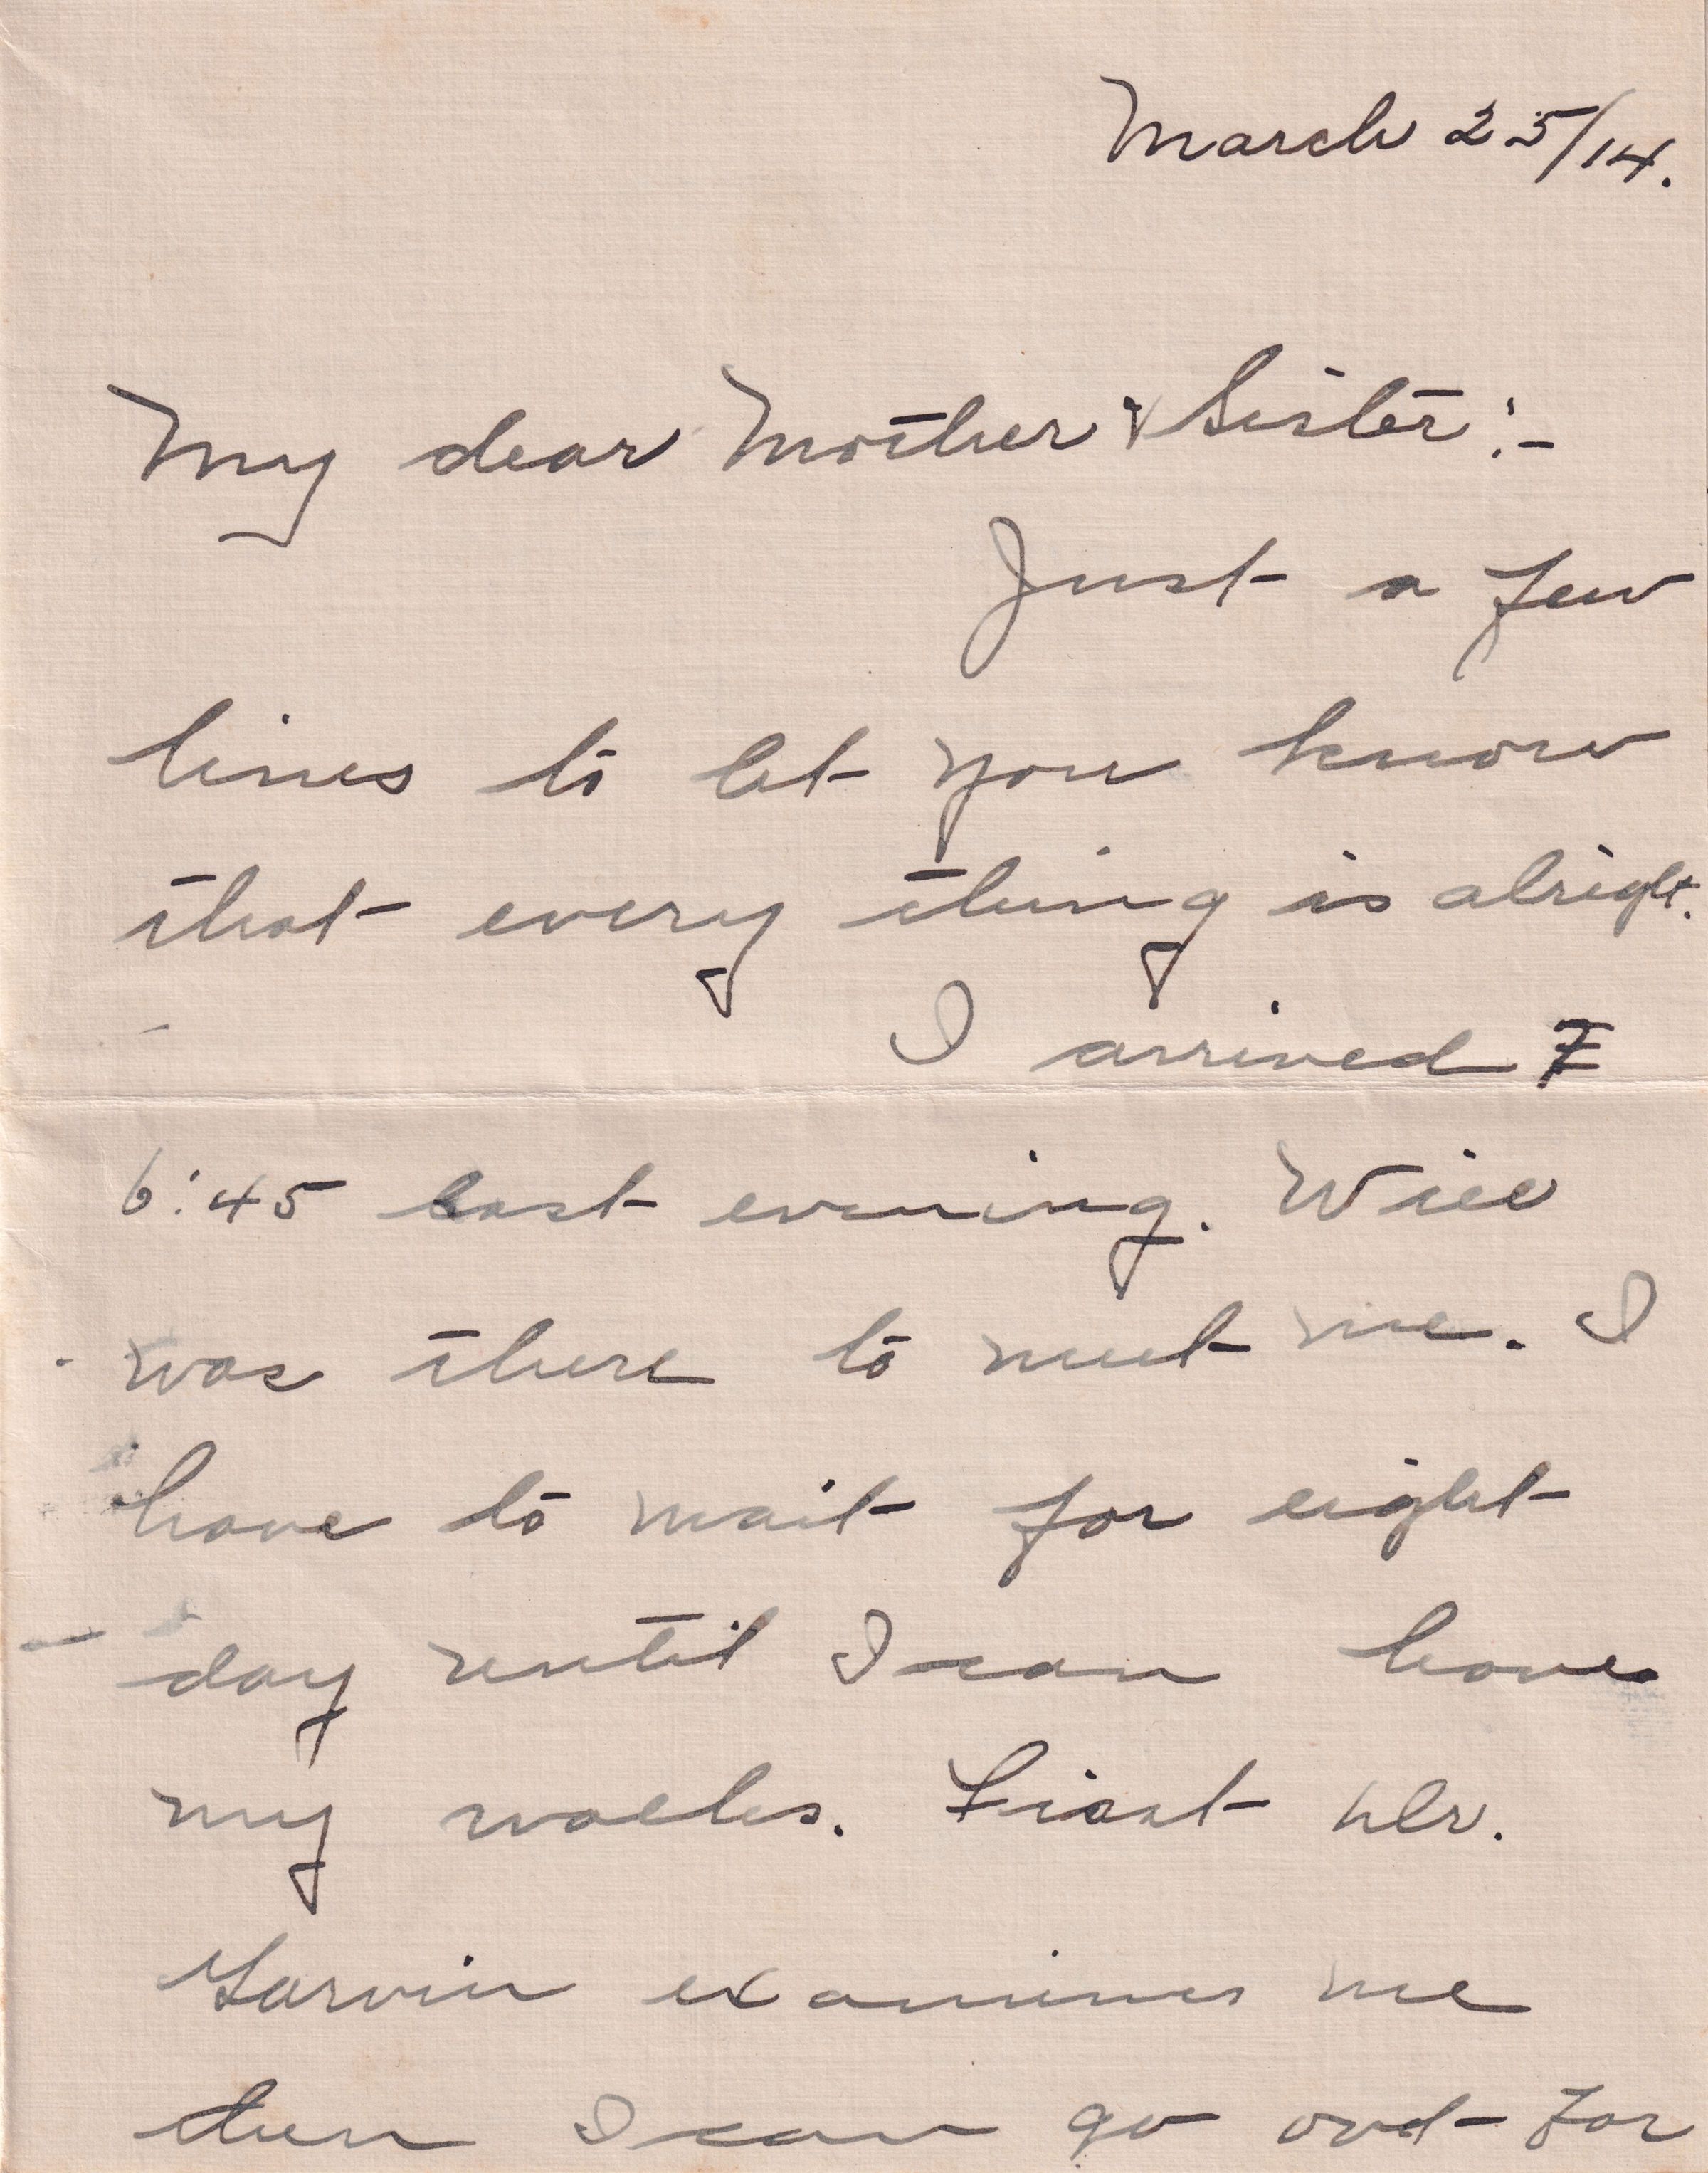 March 25/14.
My dear Mother & Sister:-
Just a few
lines to let you know
that every thing is alright.
I arrived
6:45 last evening. Will
was there to meet me. I
have to wait for eight
day until I can have
my walks. First Dr.
Garvin examines me
then I can go out for